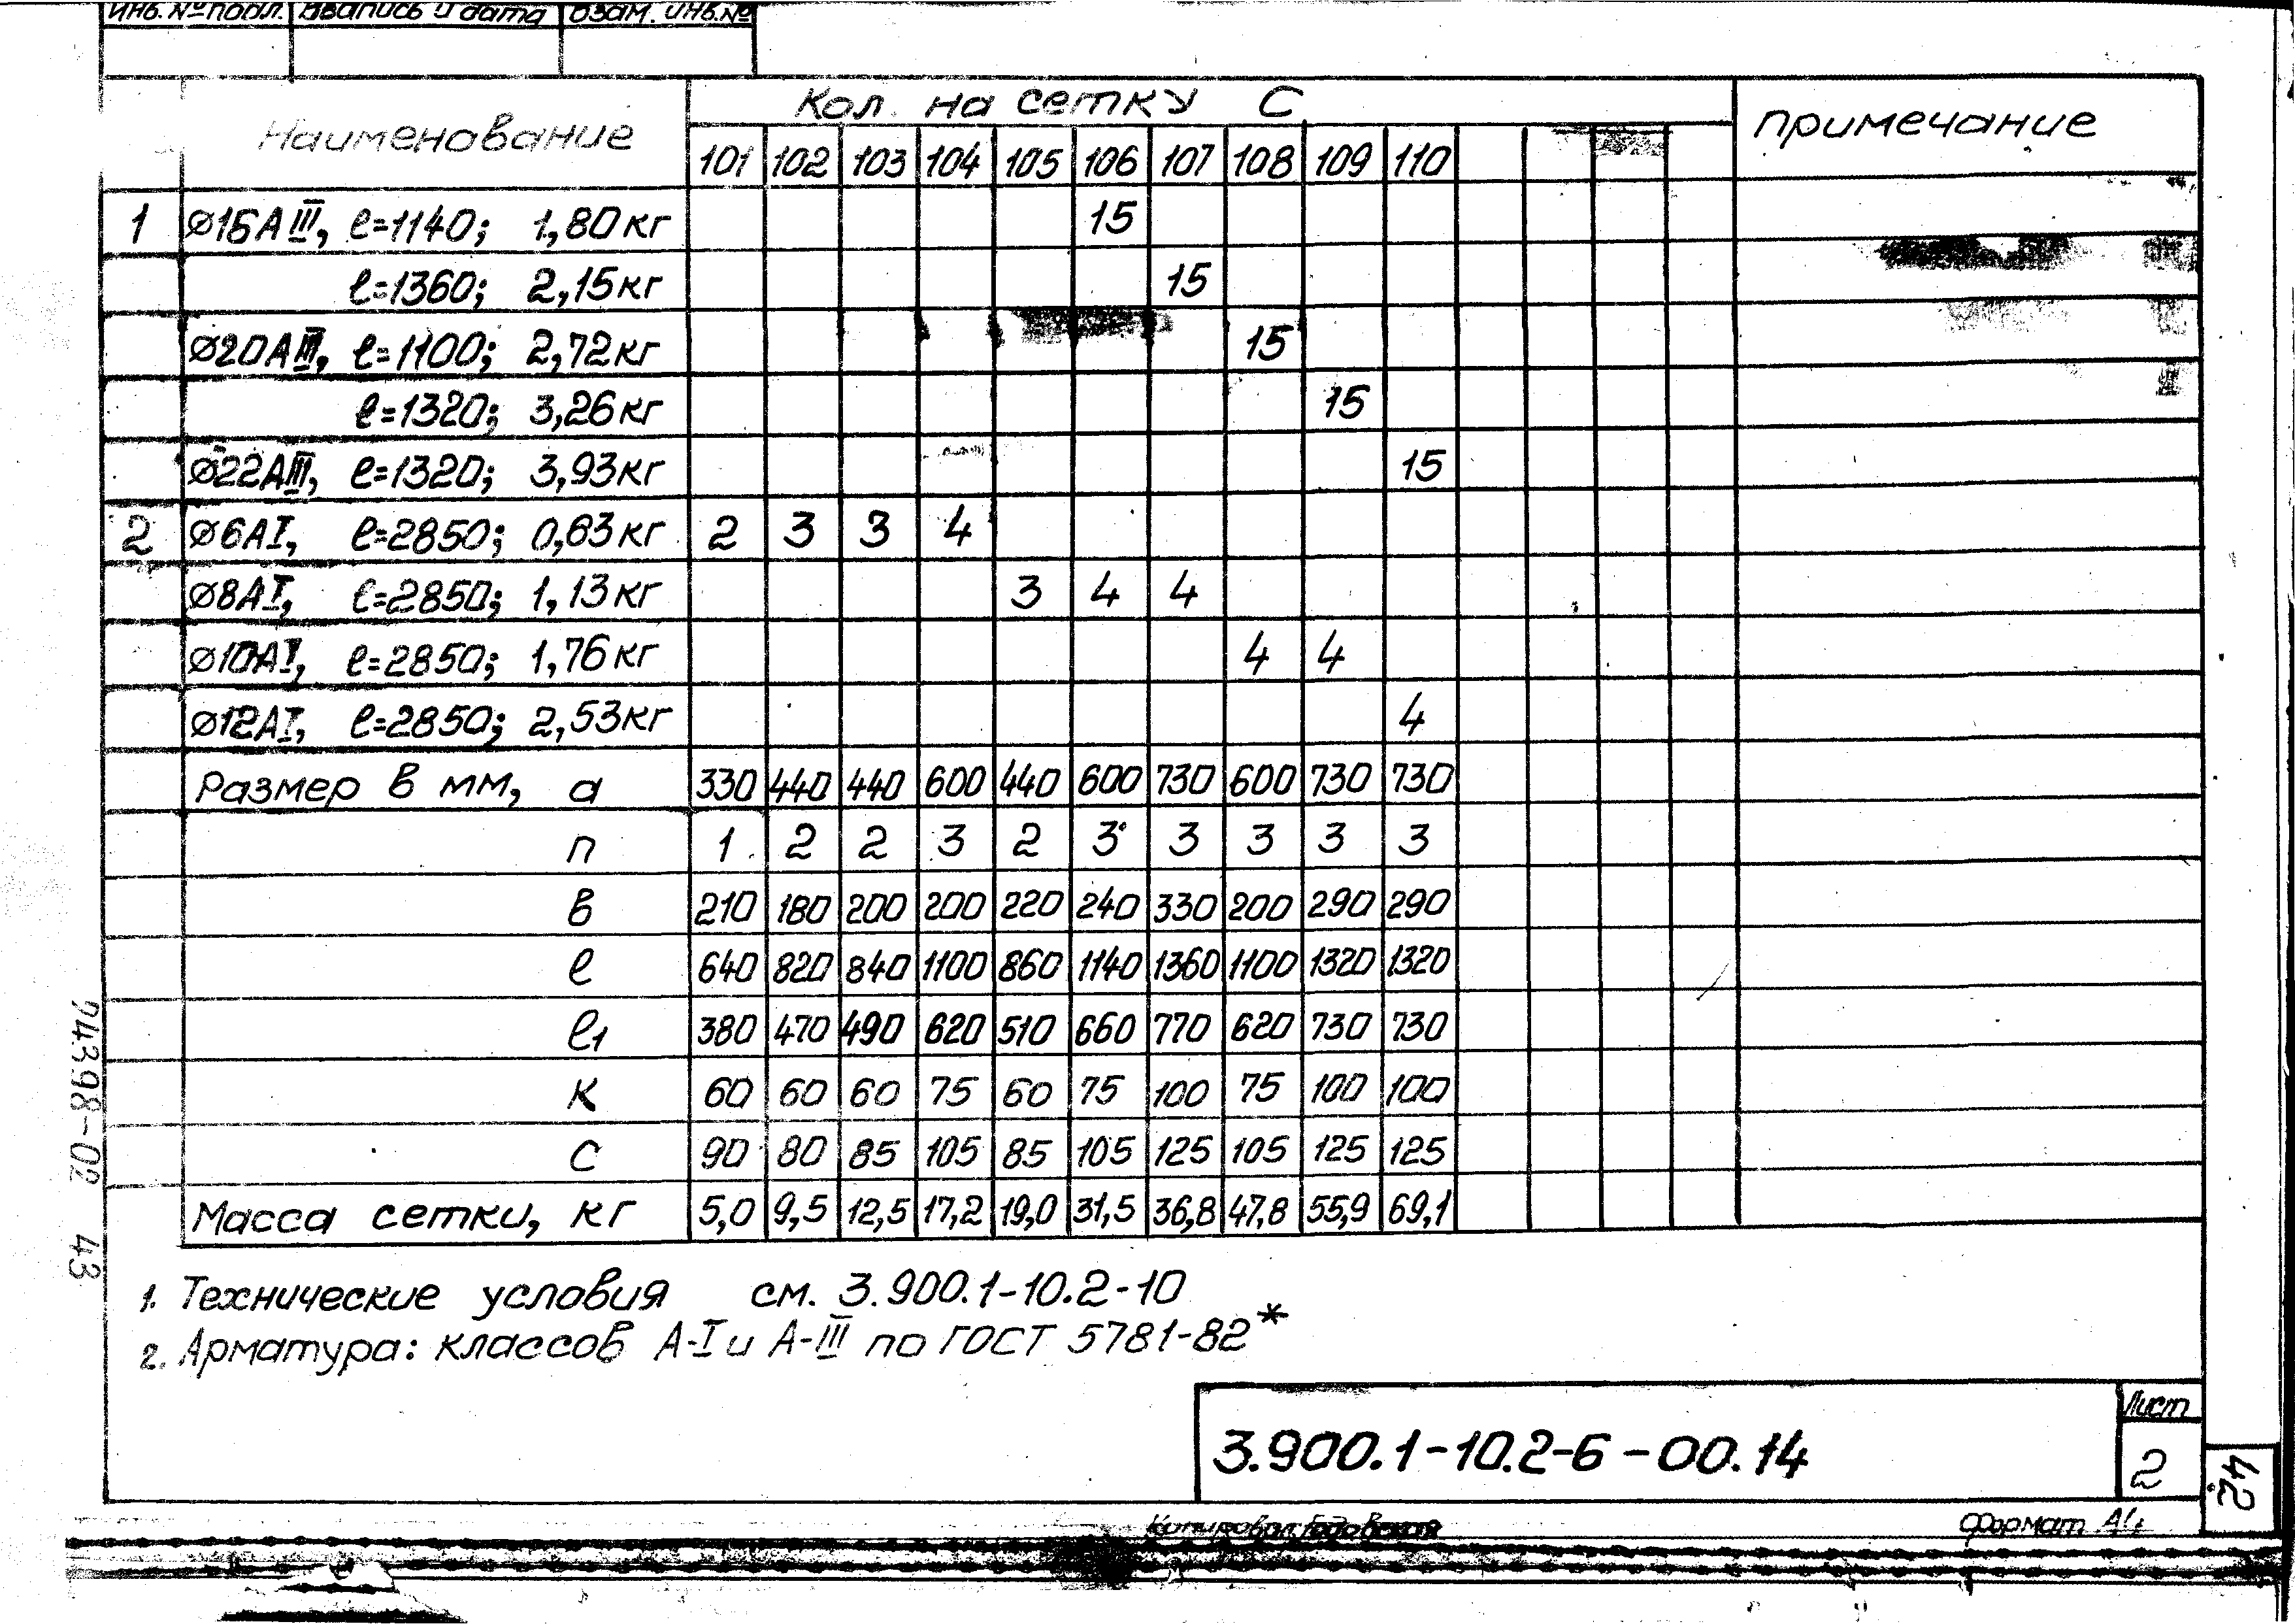 Инв. № подл. Подпись и дата Взам. инв. №
Наименование Кол. на сетку С Примечание
101 102 103 104 105 106 107 108 109 110
1 ⌀16АIII, ℓ=1140; 1,80кг 15
ℓ=1360; 2,15кг 15
⌀20АIII, ℓ=1100; 2,72кг 15
ℓ=1320; 3,26кг 15
⌀22АIII, ℓ=1320; 3,93кг 15
2 ⌀6АI, ℓ=2850; 0,63кг 2 3 3 4
⌀8АI, ℓ=2850; 1,13кг 3 4 4
⌀10АI, ℓ=2850; 1,76кг 4 4
⌀12АI, ℓ=2850; 2,53кг 4
Размер в мм, а 330 440 440 600 440 600 730 600 730 730
п 1 2 2 3 2 3 3 3 3 3
в 210 180 200 200 220 240 330 200 290 290
ℓ 640 820 840 1100 860 1140 1360 1100 1320 1320
ℓ1 380 470 490 620 510 660 770 620 730 730
К 60 60 60 75 60 75 100 75 100 100
С 90 80 85 105 85 105 125 105 125 125
Масса сетки, кг 5,0 9,5 12,5 17,2 19,0 31,5 36,8 47,8 55,9 69,1
1. Технические условия см. 3.900.1-10.2-10
2. Арматура: классов А-I и А-III по ГОСТ 5781-82*
3.900.1-10.2-6-00.14
Лист
2
42
Копировал
Формат А4
24398-02 43